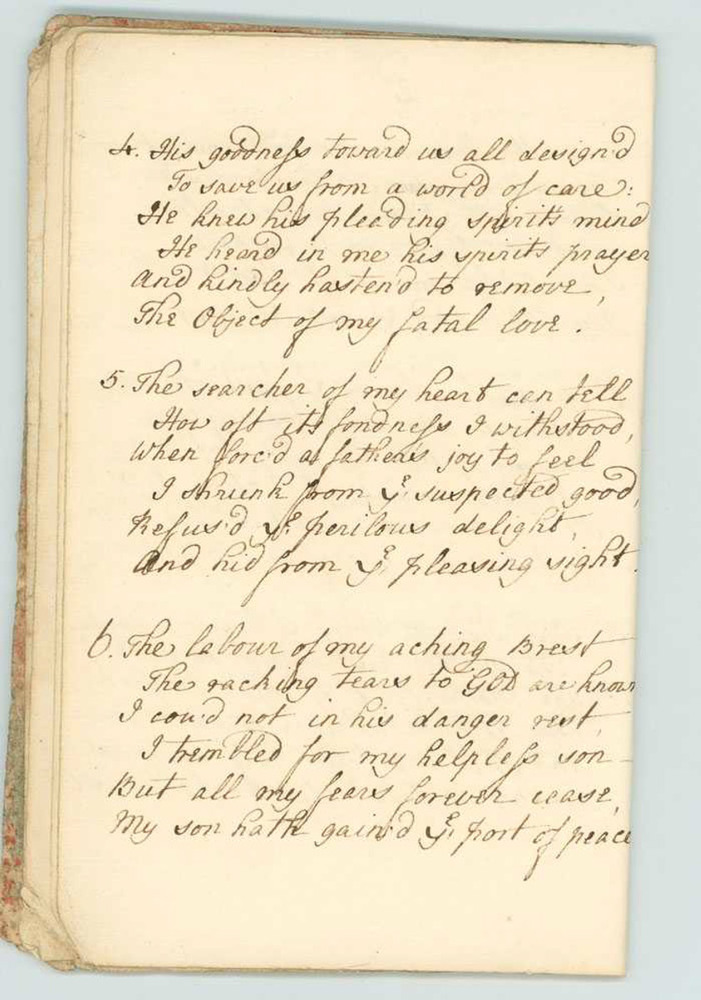 4. His goodness toward us all design'd
To save us from a world of care:
He knew his pleading spirits mind
He heard in me his spirits prayer
And kindly hasten'd to remove,
The Object of my fatal love.
5. The searcher of my heart can tell
How oft its fondness I withstood,
When forc'd a fathers joy to feel
I shrunk from ye suspected good,
Refus'd ye perilous delight,
And hid from ye pleasing sight.
6. The labour of my aching Brest
The racking tears to GOD are known
I cou'd not in his danger rest,
I trembled for my helpless son
But all my fears forever cease,
My son hath gain'd ye port of peace